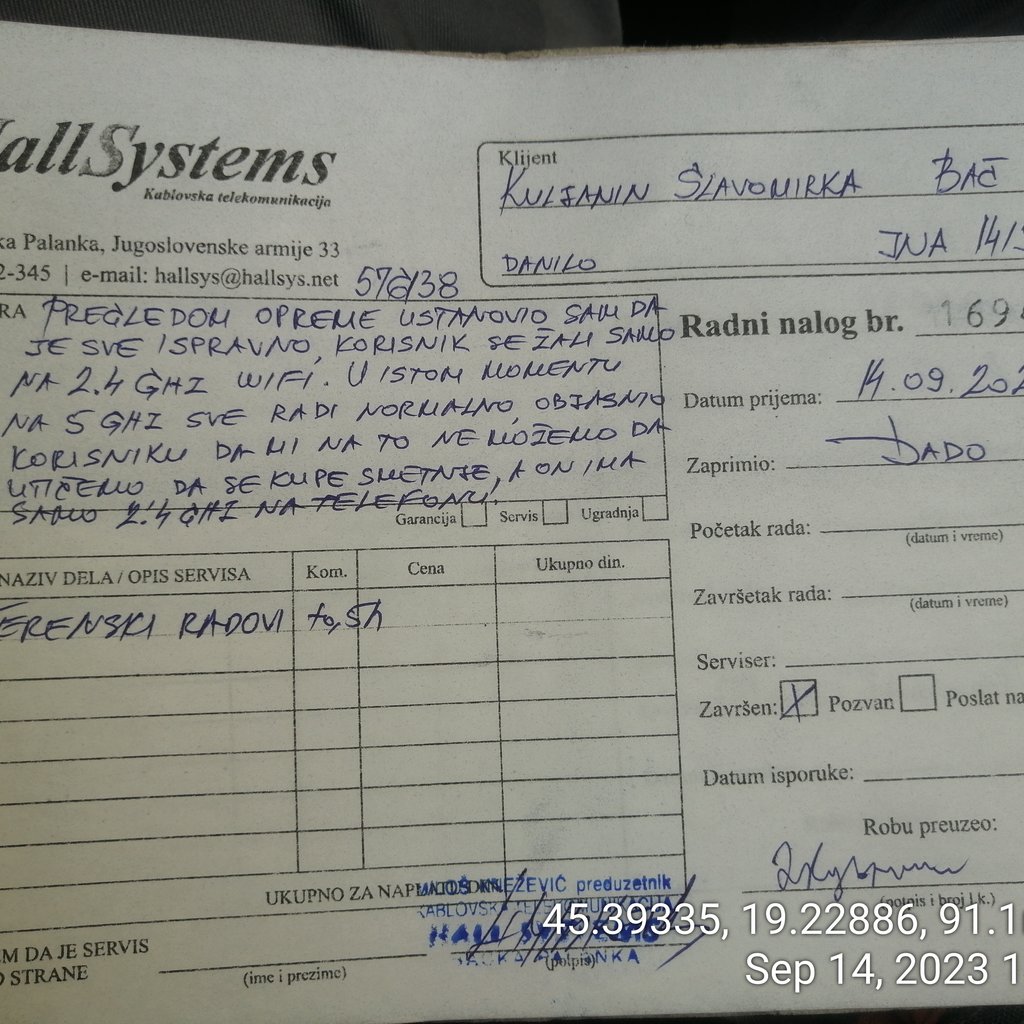 HallSystems
Kablovska telekomunikacija
ka Palanka, Jugoslovenske armije 33
2-345 | e-mail: hallsys@hallsys.net
576/38
Klijent
KULJANIN SLAVOMIRKA BAČ
JNA 14/
DANILO
RA PREGLEDOM OPREME USTANOVIO SAM DA
JE SVE ISPRAVNO, KORISNIK SE ŽALI SAMO
NA 2.4 GHZ WIFI. U ISTOM MOMENTU
NA 5 GHZ SVE RADI NORMALNO, OBJASNIO
KORISNIKU DA MI NA TO NE MOŽEMO DA
UTIČEMO DA SE KUPE SMETNJE, A ON IMA
SAMO 2.4 GHZ NA TELEFONU.
Garancija Servis Ugradnja
Radni nalog br. 169
Datum prijema: 14.09.202
Zaprimio: DADO
Početak rada:
(datum i vreme)
Završetak rada:
(datum i vreme)
Serviser:
Završen: X Pozvan Poslat na
Datum isporuke:
Robu preuzeo:
(potpis i broj l.k.)
NAZIV DELA / OPIS SERVISA Kom. Cena Ukupno din.
TERENSKI RADOVI
UKUPNO ZA NAPLATU DIN.
KNEŽEVIĆ preduzetnik
KABLOVSKA TELEKOMUNIKACIJA
HALL SYSTEMS
BAČKA PALANKA
EM DA JE SERVIS
O STRANE
(ime i prezime)
(potpis)
45.39335, 19.22886, 91.1
Sep 14, 2023 1